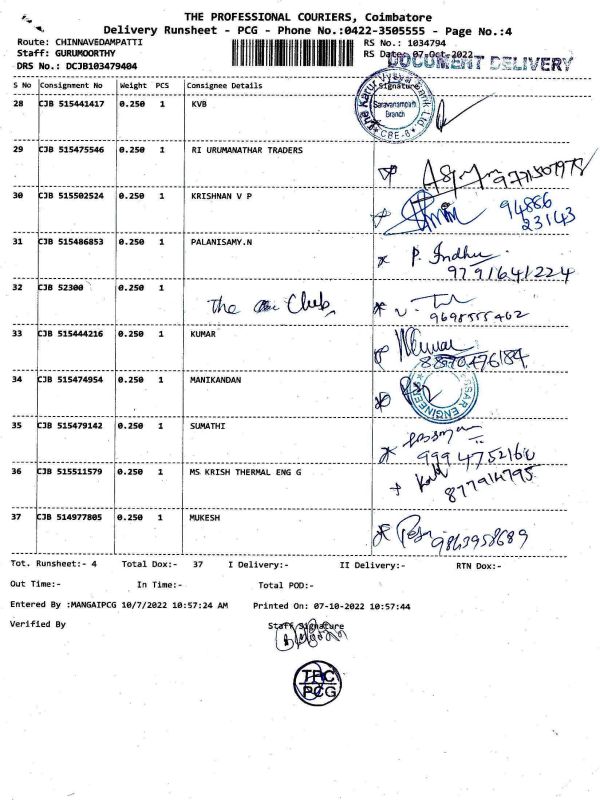 THE PROFESSIONAL COURIERS, Coimbatore
Delivery Runsheet - PCG - Phone No.:0422-3505555 - Page No.:4
Route: CHINNAVEDAMPATTI
Staff: GURUMOORTHY
DRS No.: DCJB103479404
RS No.: 1034794
RS Date: 07-Oct-2022
DOCUMENT DELIVERY
S No Consignment No Weight PCS Consignee Details Signature
28 CJB 515441417 0.250 1 KVB
The Karur Vysya Bank Ltd
Saravanampatti
Branch
CBE-6
29 CJB 515475546 0.250 1 RI URUMANATHAR TRADERS
30 CJB 515502524 0.250 1 KRISHNAN V P
94886
23143
31 CJB 515486853 0.250 1 PALANISAMY.N
P. Indhu
9791641224
32 CJB 52300 0.250 1
The Club
9698555462
33 CJB 515444216 0.250 1 KUMAR
Kumar
34 CJB 515474954 0.250 1 MANIKANDAN
ENGINEER
35 CJB 515479142 0.250 1 SUMATHI
36 CJB 515511579 0.250 1 MS KRISH THERMAL ENG G
37 CJB 514977805 0.250 1 MUKESH
9843958689
Tot. Runsheet:- 4 Total Dox:- 37 I Delivery:- II Delivery:- RTN Dox:-
Out Time:- In Time:- Total POD:-
Entered By :MANGAIPCG 10/7/2022 10:57:24 AM Printed On: 07-10-2022 10:57:44
Verified By Staff Signature
TPC
PCG